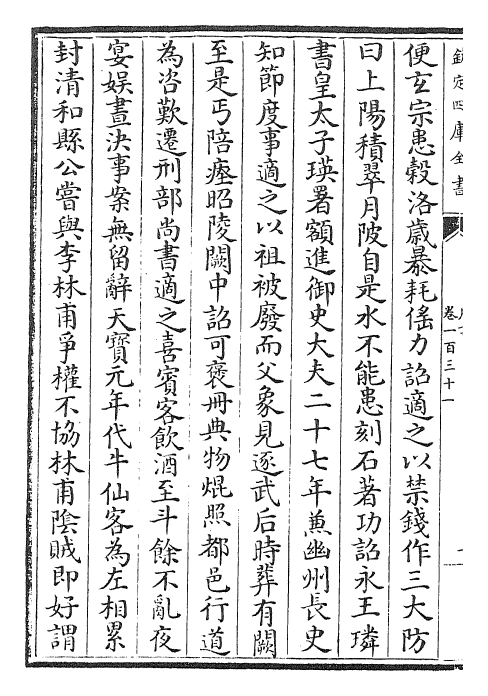 欽定四庫全書
卷一百三十一
便玄宗患穀洛歳暴耗徭力詔適之以禁錢作三大防
曰上陽積翠月陂自是水不能患刻石著功詔永王璘
書皇太子瑛署額進御史大夫二十七年兼幽州長史
知節度事適之以祖被廢而父象見逐武后時葬有闕
至是丐陪瘞昭陵闕中詔可褒冊典物焜照都邑行道
為咨歎遷刑部尚書適之喜賓客飲酒至斗餘不亂夜
宴娛晝決事案無留辭天寶元年代牛仙客為左相累
封清和縣公嘗與李林甫爭權不協林甫陰賊即好謂